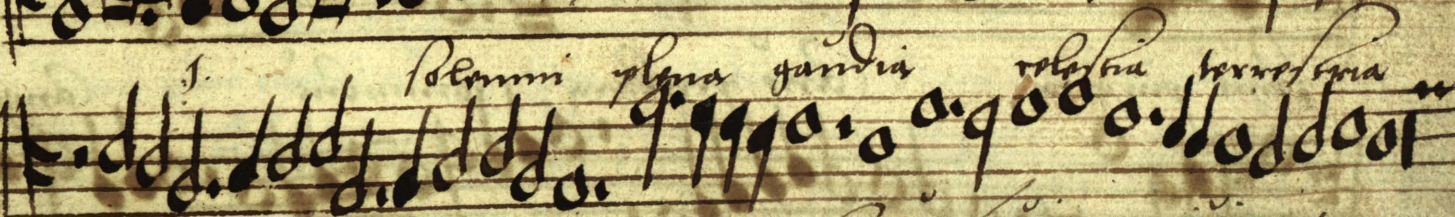 J. solemni plena gaudia celestia terrestria